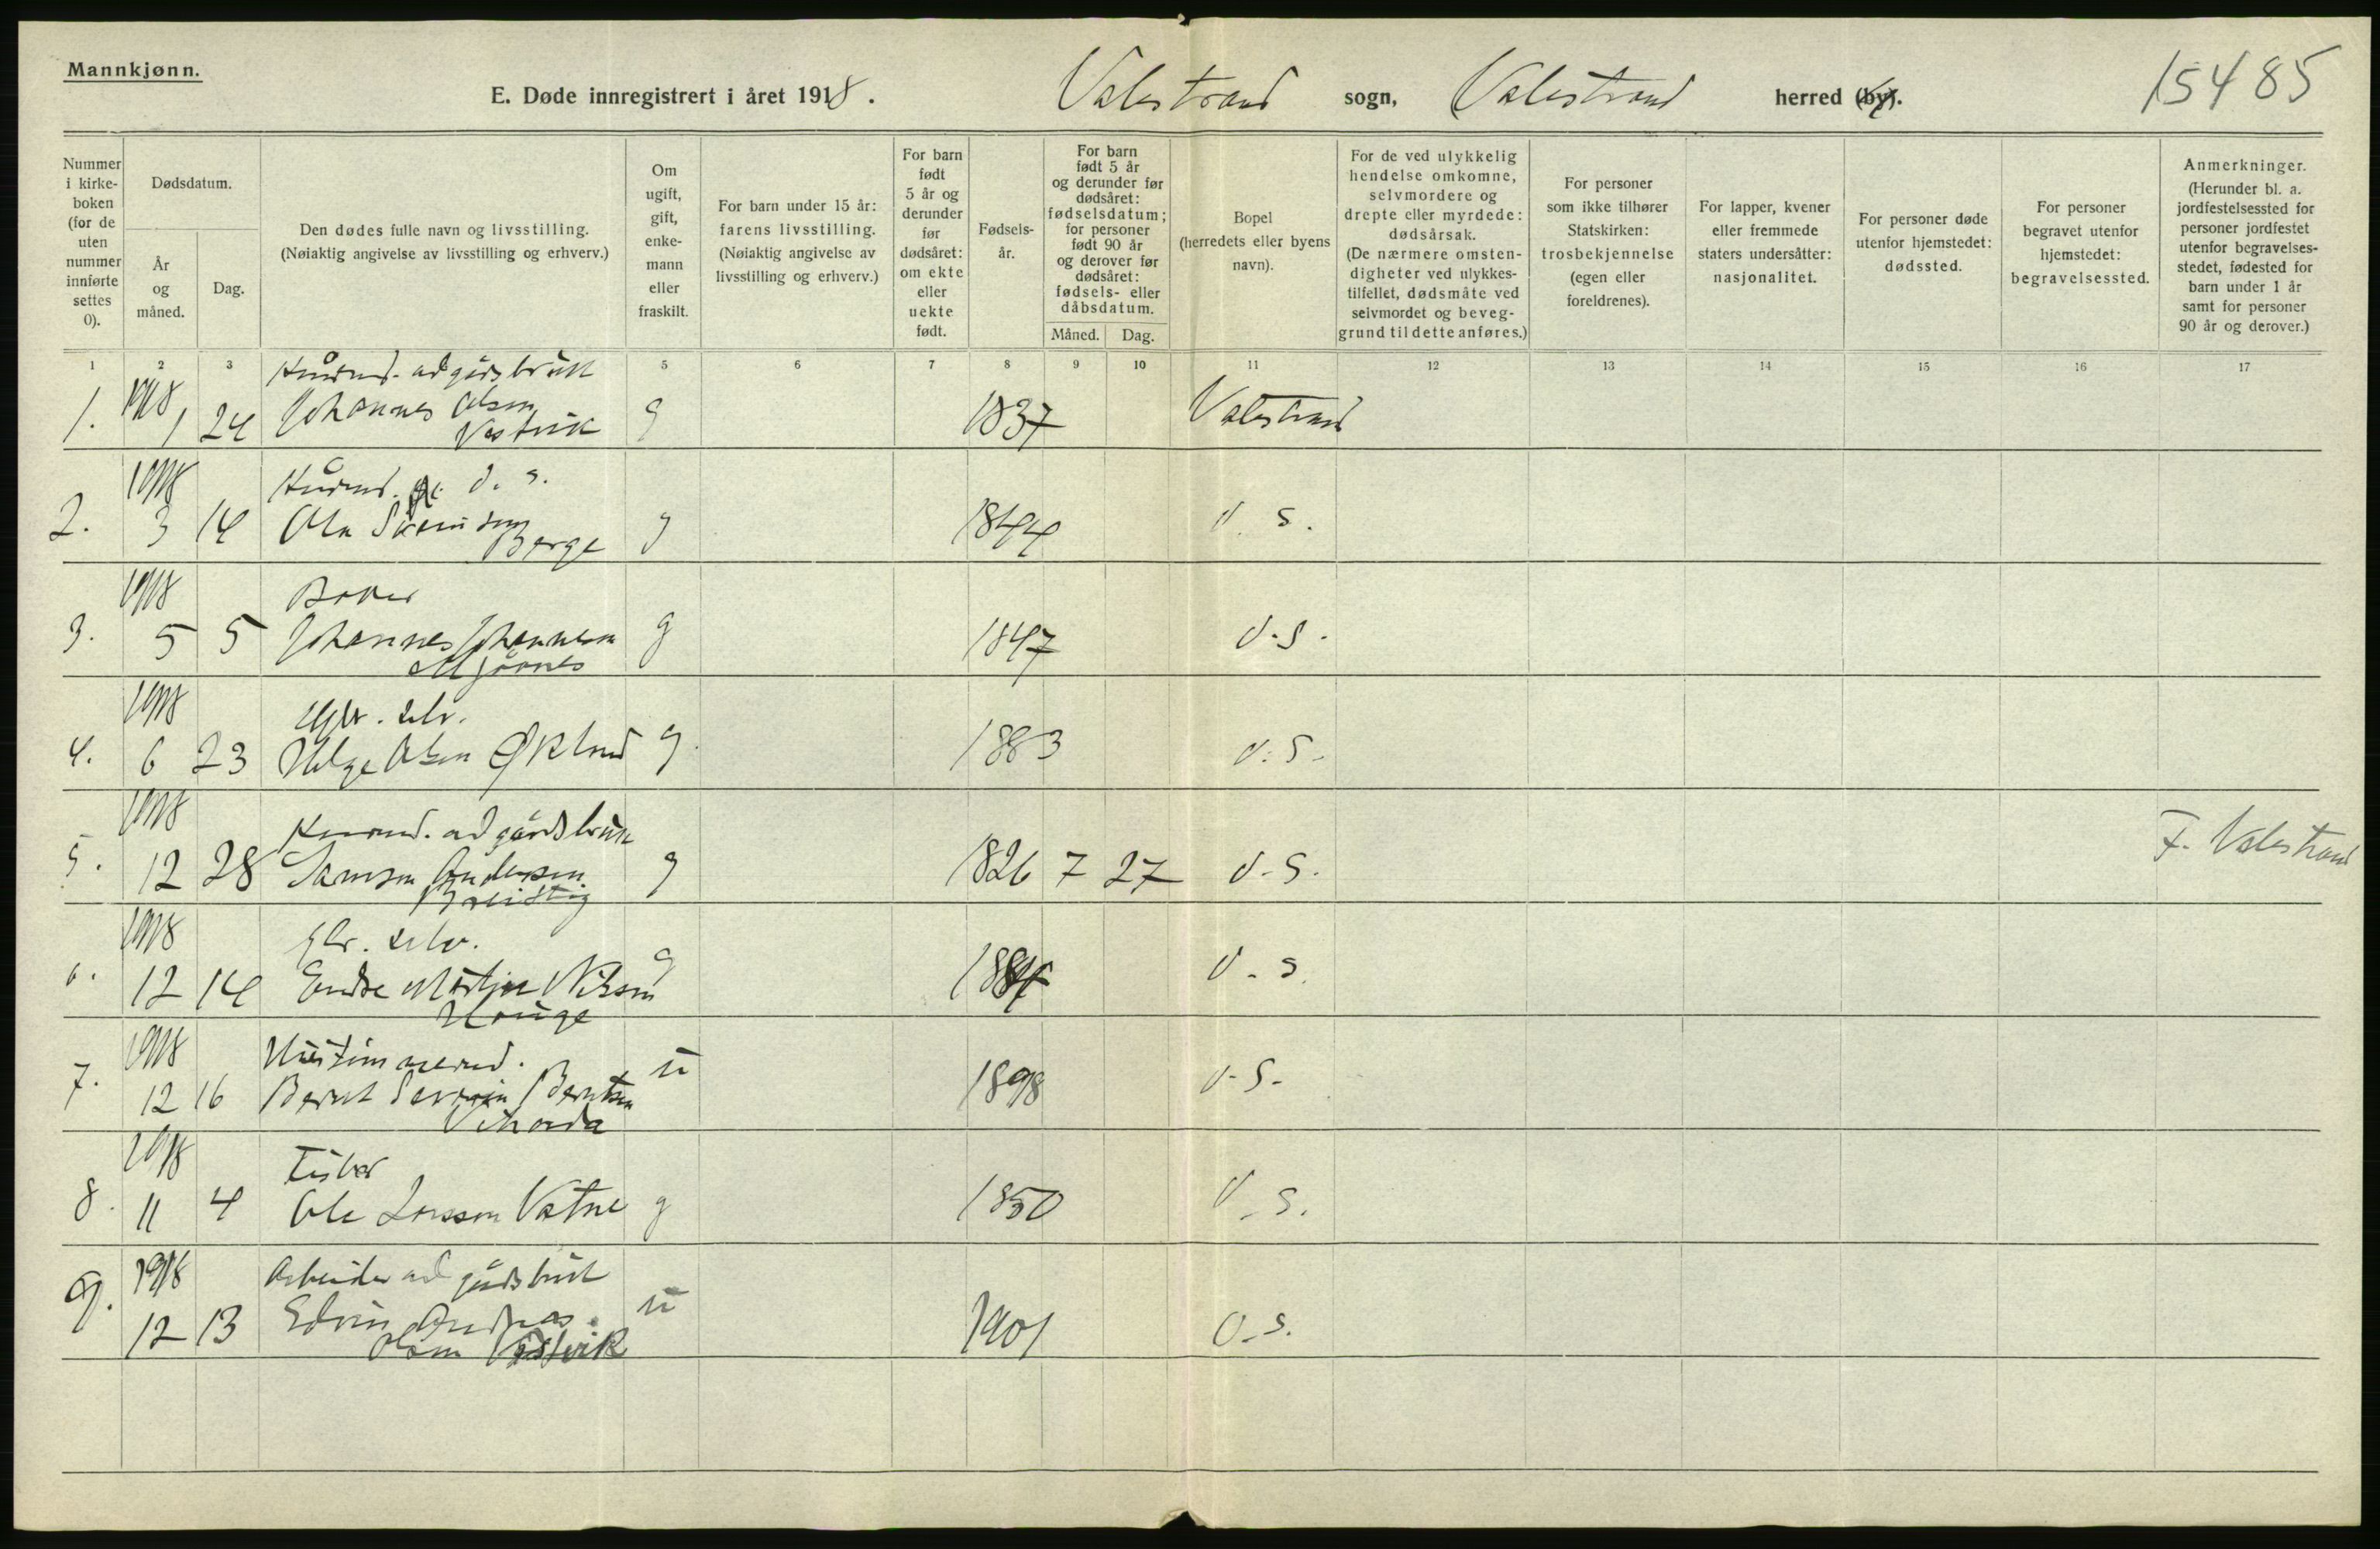 Mannkjønn.
E. Døde innregistrert i året 1918. Valestrand sogn, Valestrand herred (by).
15485
Nummer i kirkeboken (for de uten nummer innførte settes 0).
Dødsdatum.
År og måned.
Dag.
Den dødes fulle navn og livsstilling.
(Nøiaktig angivelse av livsstilling og erhverv.)
Om ugift, gift, enkemann eller fraskilt.
For barn under 15 år: farens livsstilling. (Nøiaktig angivelse av livsstilling og erhverv.)
For barn født 5 år og derunder før dødsåret: om ekte eller uekte født.
Fødselsår.
For barn født 5 år og derunder før dødsåret: fødselsdatum; for personer født 90 år og derover før dødsåret: fødsels- eller dåbsdatum.
Måned. Dag.
Bopel (herredets eller byens navn).
For de ved ulykkelig hendelse omkomne, selvmordere og drepte eller myrdede: dødsårsak. (De nærmere omstendigheter ved ulykkestilfellet, dødsmåte ved selvmordet og beveggrund til dette anføres.)
For personer som ikke tilhører Statskirken: trosbekjennelse (egen eller foreldrenes).
For lapper, kvener eller fremmede staters undersåtter: nasjonalitet.
For personer døde utenfor hjemstedet: dødssted.
For personer begravet utenfor hjemstedet: begravelsessted.
Anmerkninger. (Herunder bl. a. jordfestelsessted for personer jordfestet utenfor begravelsesstedet, fødested for barn under 1 år samt for personer 90 år og derover.)
1 2 3 5 6 7 8 9 10 11 12 13 14 15 16 17
Kårmd. ad gårdsbruk
1. 1918 1 24 Johannes Olsen Vestvik g 1837 Valestrand
Kårmd. d. s.
2. 1918 3 14 Ola Berge g 1844 d. s.
1918
3. 5 5 Johannes Johannesen g 1847 d. s.
1918 selv.
4. 6 23 Helge Olsen Økland g 1883 d. s.
1918 Kårmd. ad gårdsbruk
5. 12 28 Samson Andersen g 1826 7 27 d. s. F. Valestrand
1918 Gbr. selv.
6. 12 14 Endre Martin Nilsen Hauge g d. s.
1918 Hustømmermd.
7. 12 16 Bernt Severin Berntsen u 1898 d. s.
1918 Fisker
8. 11 4 Ole Larsson Vatne g 1850 d. s.
1918 Arbeider ad gårdsbruk
9. 12 13 Edvin Andreas Olsen Vestvik u 1901 d. s.